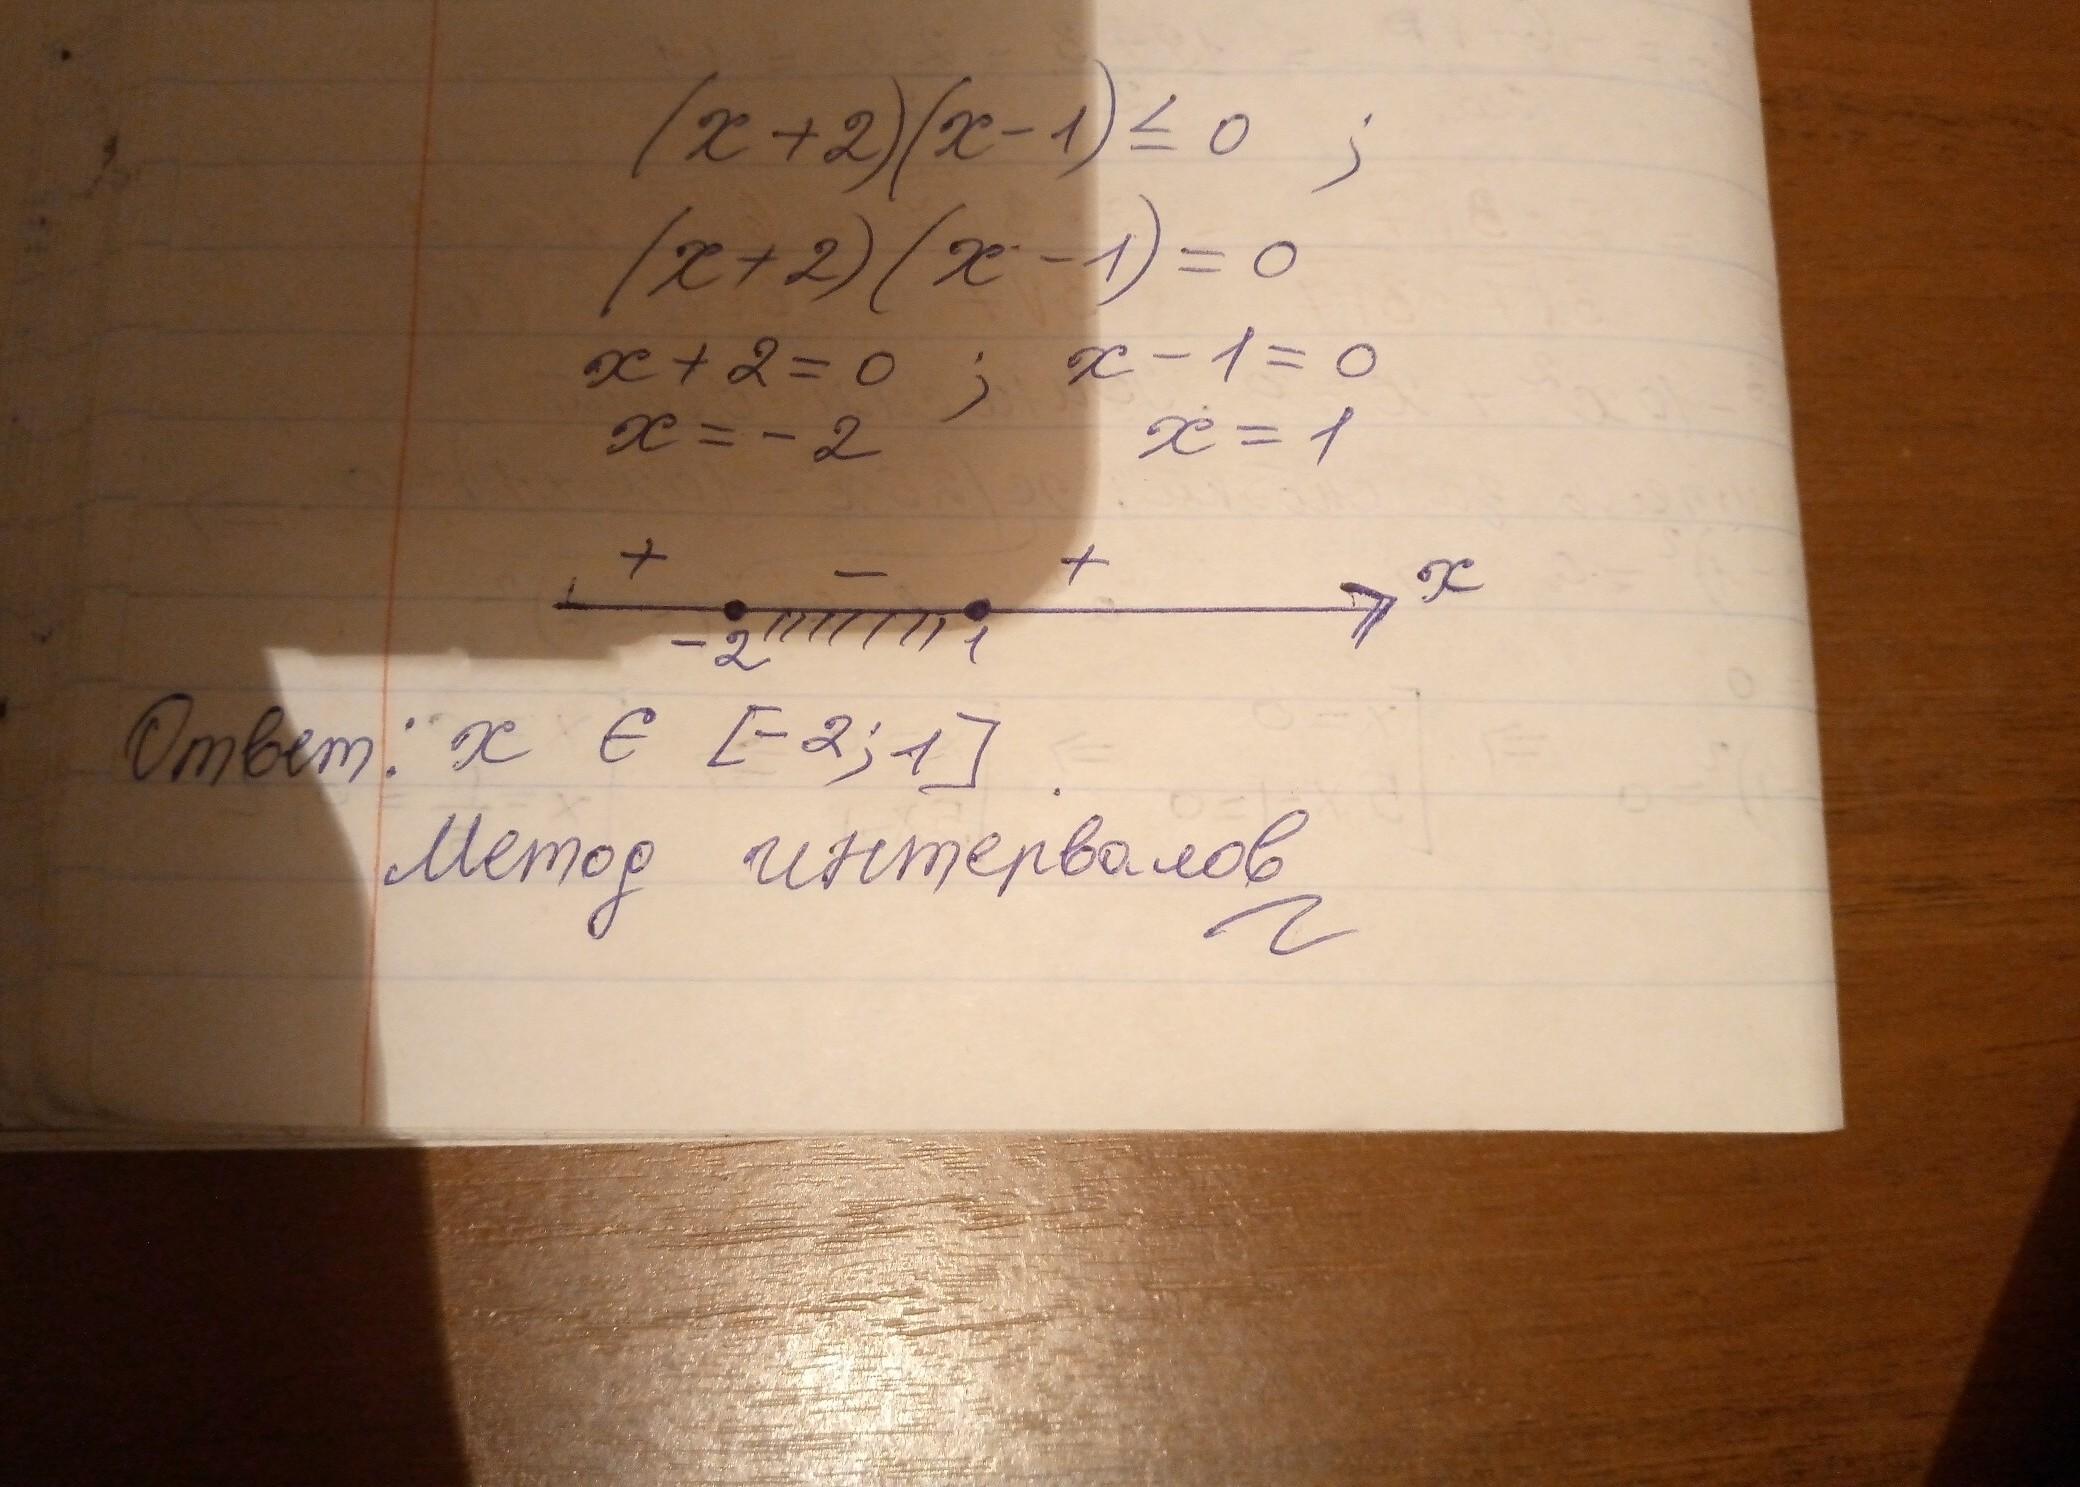 (x+2)(x-1)≤0 ;
(x+2)(x-1)=0
x+2=0 ; x-1=0
x=-2 x=1
+ - + x
-2 1
Ответ: x ∈ [-2;1].
Метод интервалов